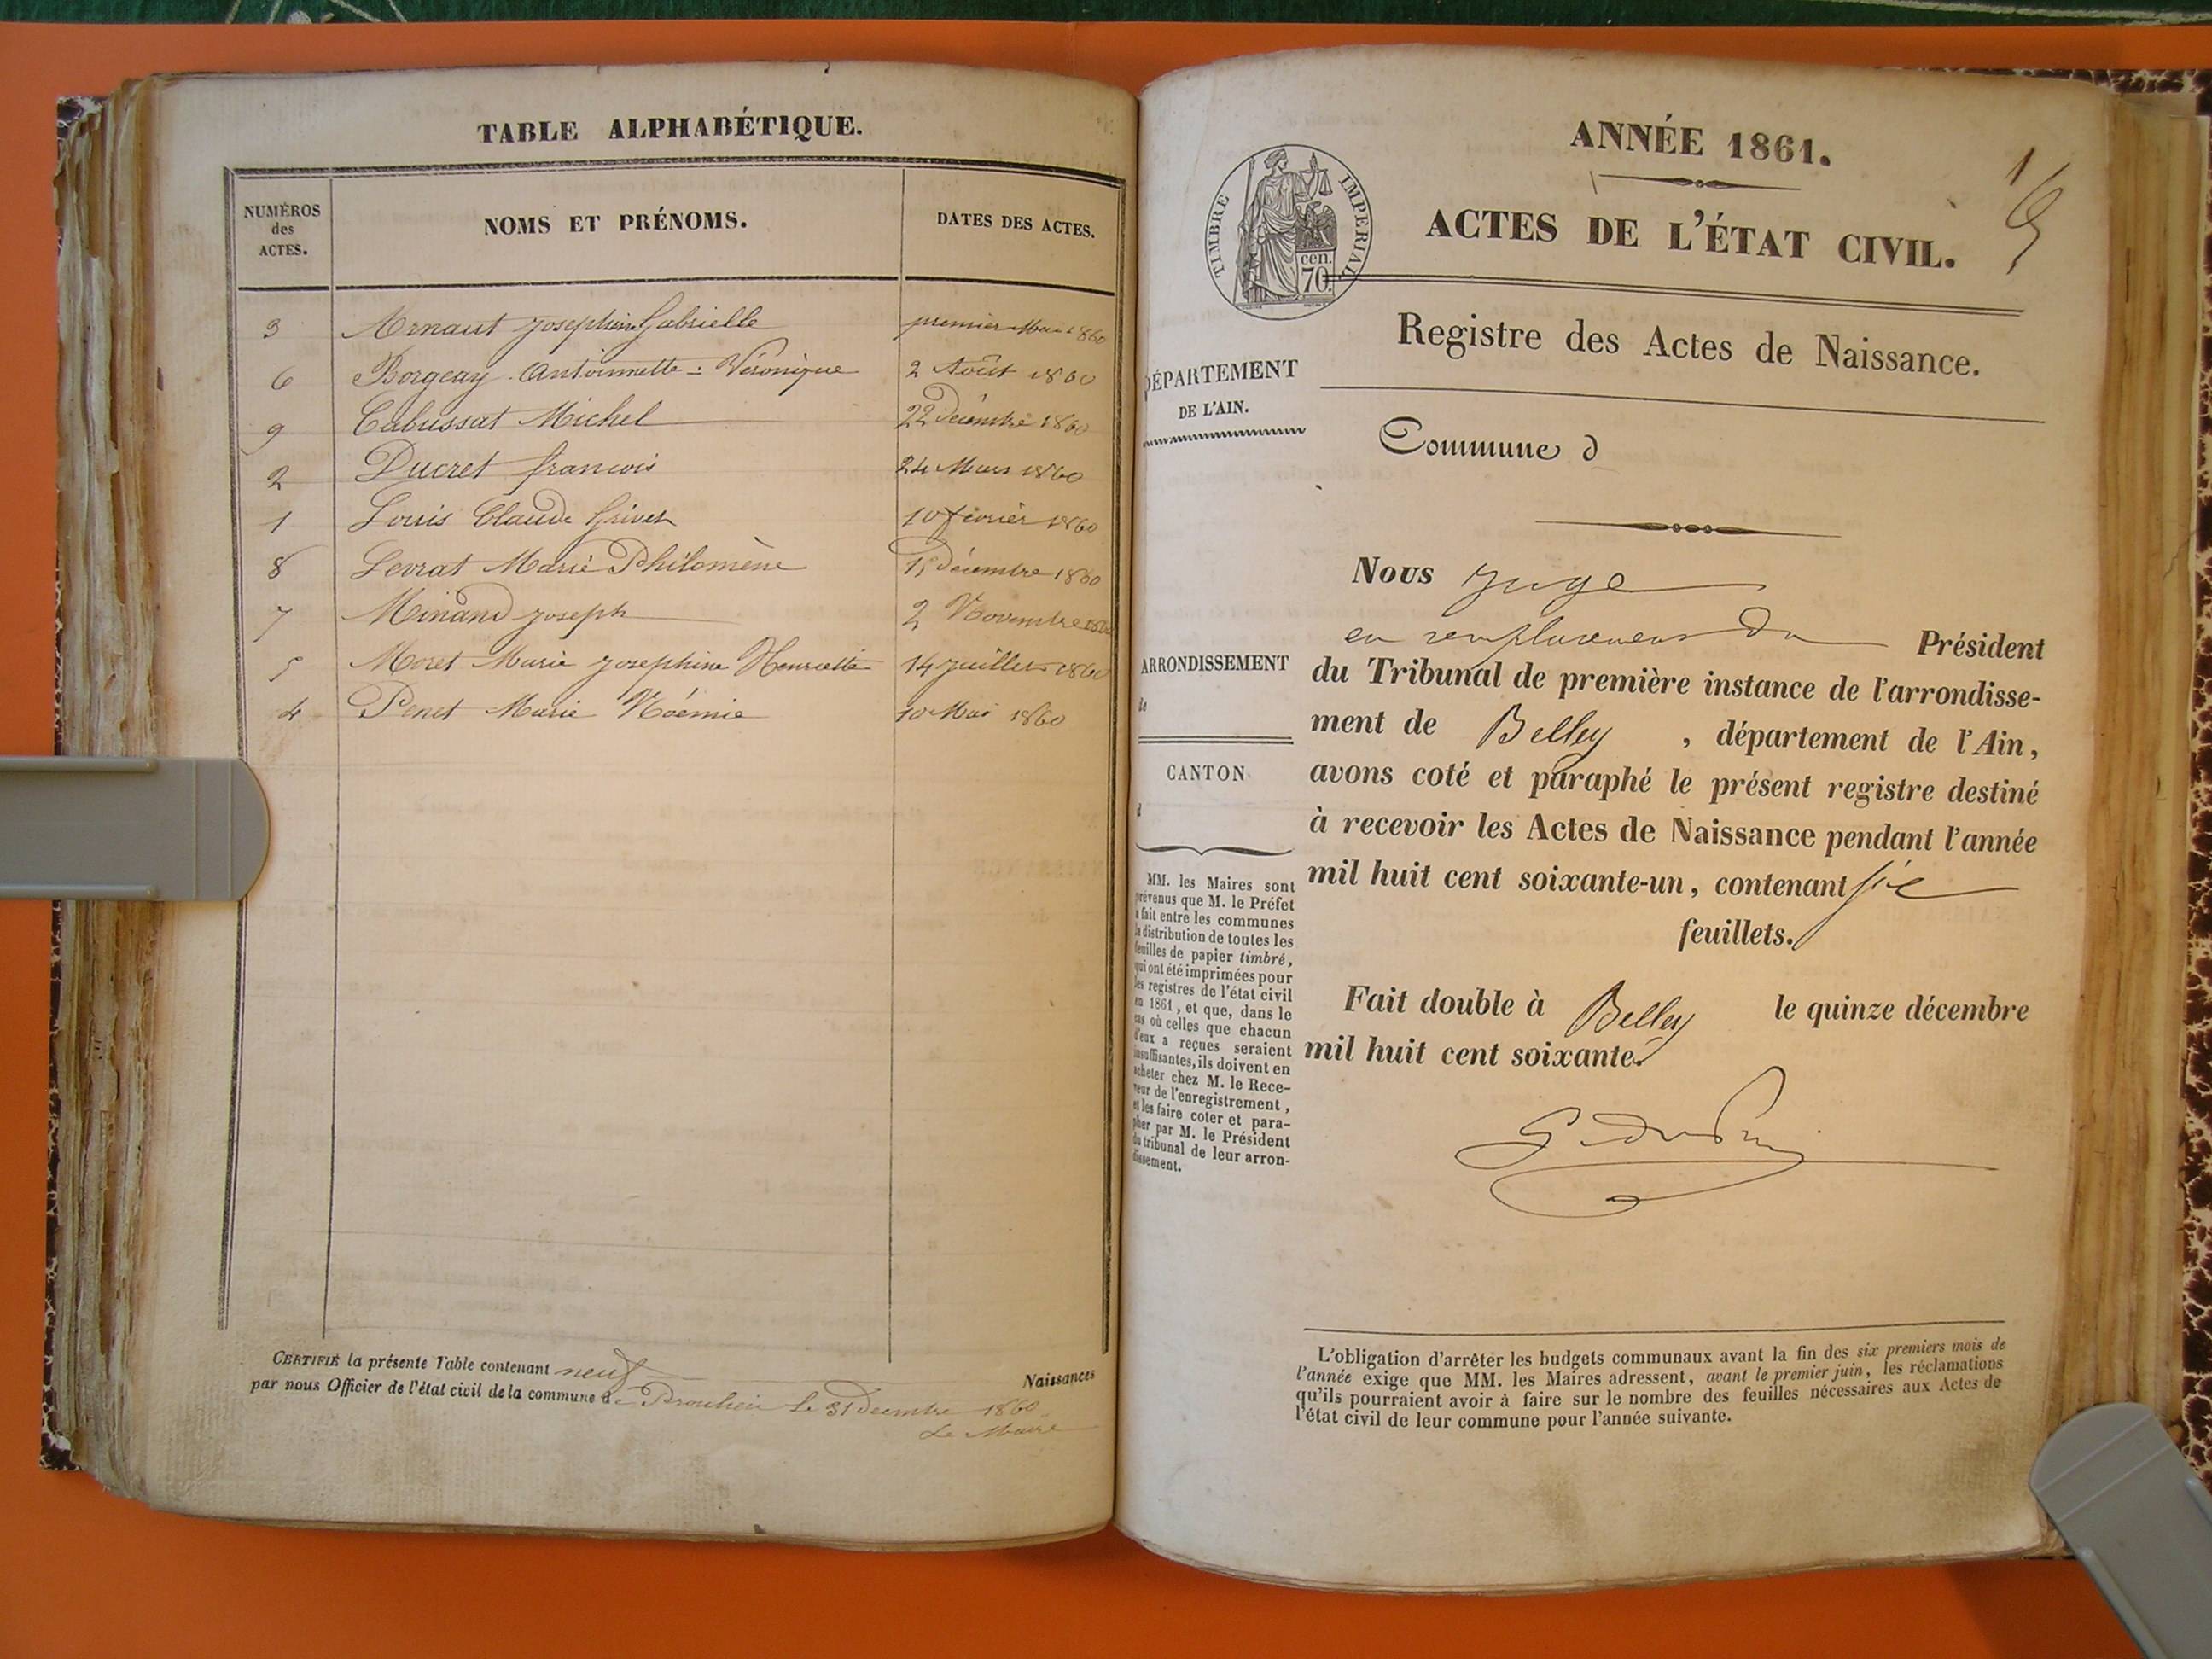 TABLE ALPHABÉTIQUE.
NUMÉROS des ACTES. NOMS ET PRÉNOMS. DATES DES ACTES.
3 Arnaut Josephine Gabrielle premier Mai 1860
6 Borgeay Antoinette : Véronique 2 Août 1860
9 Cabussat Michel 22 Décembre 1860
2 Ducret francois 24 Mars 1860
1 Louis Claude 10 fevrier 1860
8 Levrat Marie Philomène 15 décembre 1860
7 Minand Joseph 2 Novembre 1860
5 Moret Marie Josephine Henriette 14 juillet 1860
4 Penet Marie Noémie 10 Mai 1860
CERTIFIÉ la présente Table contenant neuf Naissances
par nous Officier de l'état civil de la commune de le 31 Decembre 1860
Le Maire
ANNÉE 1861.
1
ACTES DE L'ÉTAT CIVIL.
TIMBRE IMPERIAL
cen.
70.
Registre des Actes de Naissance.
DÉPARTEMENT
DE L'AIN.
Commune d
Nous juge
en remplacement du Président
du Tribunal de première instance de l'arrondisse-
ment de Belley , département de l'Ain,
avons coté et paraphé le présent registre destiné
à recevoir les Actes de Naissance pendant l'année
mil huit cent soixante-un, contenant six
feuillets.
Fait double à Belley le quinze décembre
mil huit cent soixante.
ARRONDISSEMENT
de
CANTON
d
MM. les Maires sont
prévenus que M. le Préfet
a fait entre les communes
la distribution de toutes les
feuilles de papier timbré,
qui ont été imprimées pour
les registres de l'état civil
en 1861, et que, dans le
cas où celles que chacun
d'eux a reçues seraient
insuffisantes, ils doivent en
acheter chez M. le Rece-
veur de l'enregistrement,
et les faire coter et para-
pher par M. le Président
du tribunal de leur arron-
dissement.
L'obligation d'arrêter les budgets communaux avant la fin des six premiers mois de
l'année exige que MM. les Maires adressent, avant le premier juin, les réclamations
qu'ils pourraient avoir à faire sur le nombre des feuilles nécessaires aux Actes de
l'état civil de leur commune pour l'année suivante.